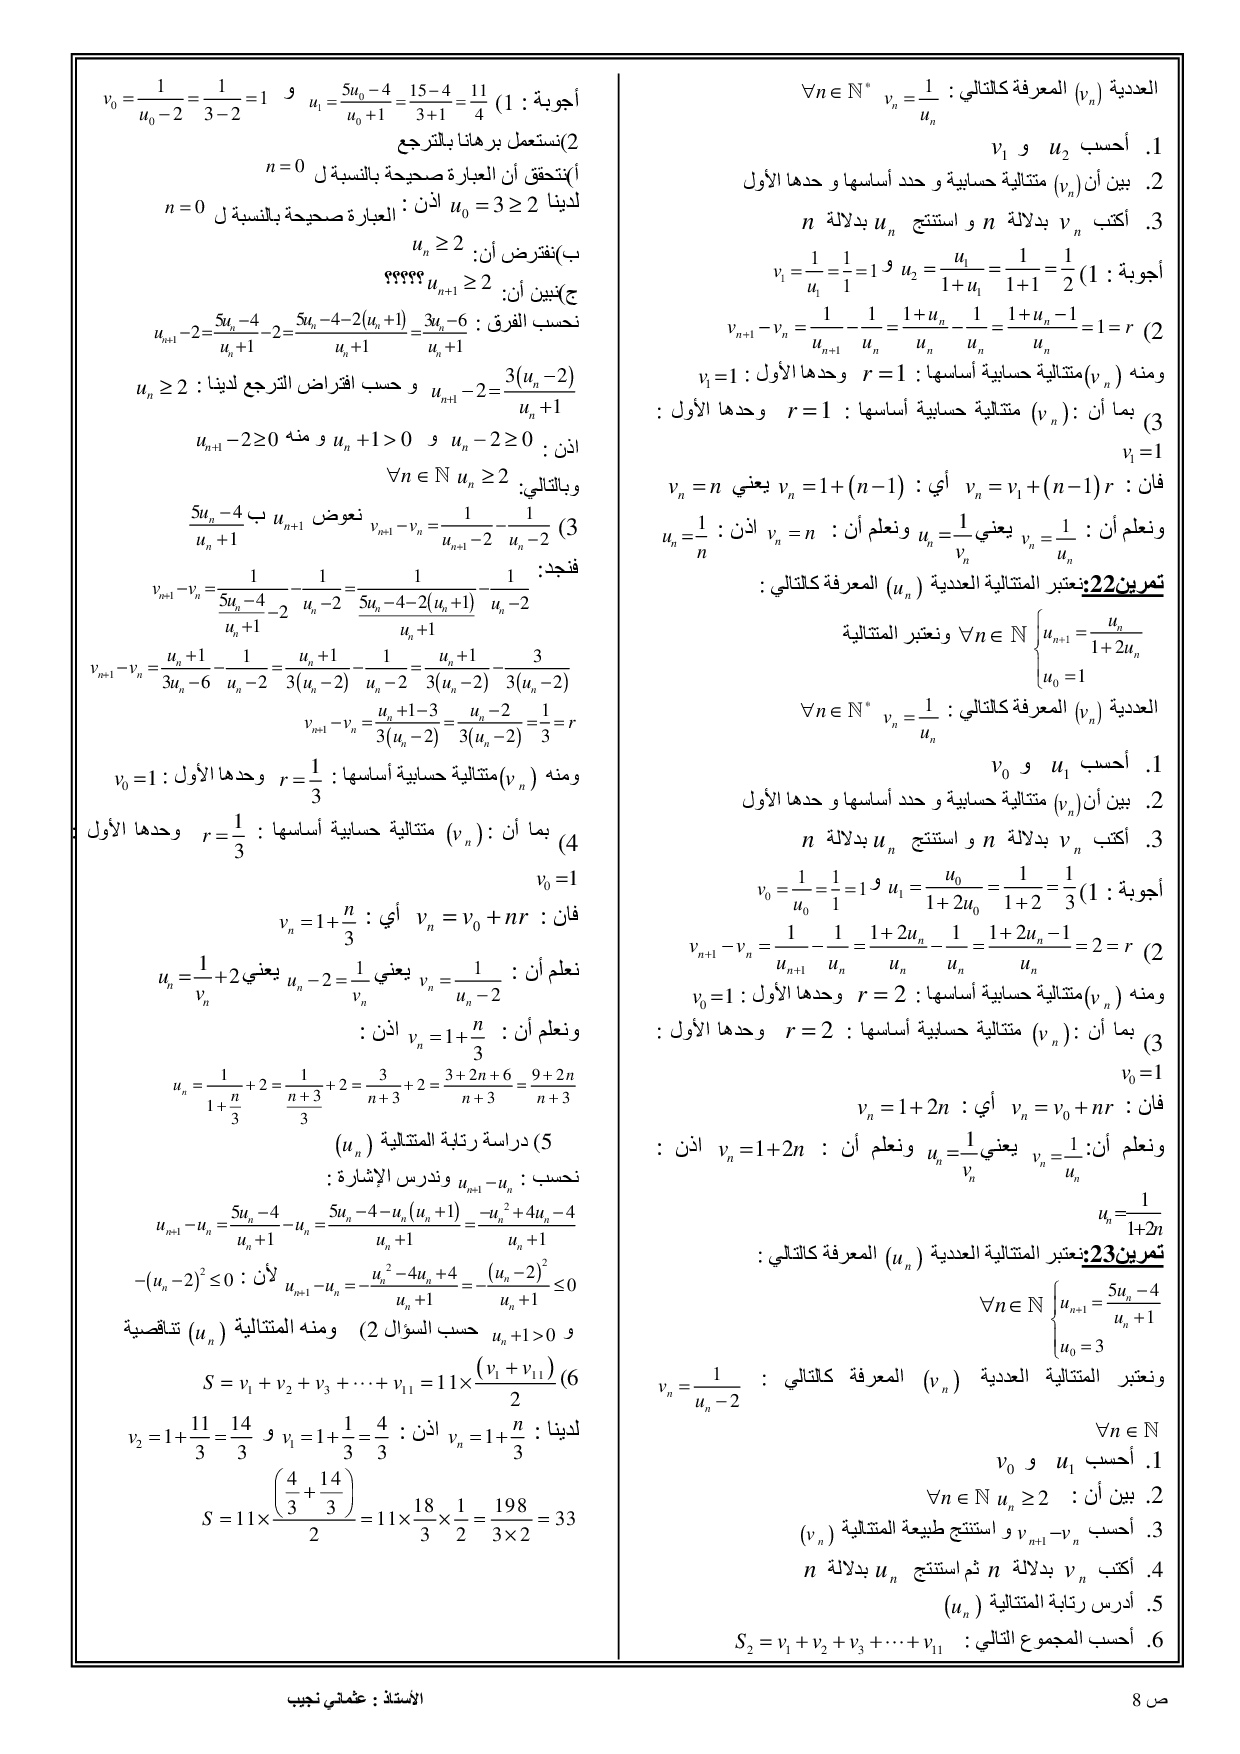 العددية (vₙ) المعرفة كالتالي : vₙ = 1/uₙ ∀n ∈ ℕ*
1. أحسب u₂ و v₁
2. بين أن (vₙ) متتالية حسابية و حدد أساسها و حدها الأول
3. أكتب vₙ بدلالة n و استنتج uₙ بدلالة n
أجوبة : 1) u₂ = u₁/(1+u₁) = 1/(1+1) = 1/2 و v₁ = 1/u₁ = 1/1 = 1
2) vₙ₊₁ − vₙ = 1/uₙ₊₁ − 1/uₙ = (1+uₙ)/uₙ − 1/uₙ = (1+uₙ−1)/uₙ = 1 = r
ومنه (vₙ) متتالية حسابية أساسها : r = 1 وحدها الأول : v₁ = 1
3) بما أن : (vₙ) متتالية حسابية أساسها : r = 1 وحدها الأول :
v₁ = 1
فان : vₙ = v₁ + (n−1)r أي : vₙ = 1 + (n−1) يعني vₙ = n
ونعلم أن : vₙ = 1/uₙ يعني uₙ = 1/vₙ ونعلم أن : vₙ = n اذن : uₙ = 1/n
تمرين22: نعتبر المتتالية العددية (uₙ) المعرفة كالتالي :
{ uₙ₊₁ = uₙ/(1+2uₙ) ; u₀ = 1 ∀n ∈ ℕ ونعتبر المتتالية
العددية (vₙ) المعرفة كالتالي : vₙ = 1/uₙ ∀n ∈ ℕ*
1. أحسب u₁ و v₀
2. بين أن (vₙ) متتالية حسابية و حدد أساسها و حدها الأول
3. أكتب vₙ بدلالة n و استنتج uₙ بدلالة n
أجوبة : 1) u₁ = u₀/(1+2u₀) = 1/(1+2) = 1/3 و v₀ = 1/u₀ = 1/1 = 1
2) vₙ₊₁ − vₙ = 1/uₙ₊₁ − 1/uₙ = (1+2uₙ)/uₙ − 1/uₙ = (1+2uₙ−1)/uₙ = 2 = r
ومنه (vₙ) متتالية حسابية أساسها : r = 2 وحدها الأول : v₀ = 1
3) بما أن : (vₙ) متتالية حسابية أساسها : r = 2 وحدها الأول :
v₀ = 1
فان : vₙ = v₀ + nr أي : vₙ = 1 + 2n
ونعلم أن: vₙ = 1/uₙ يعني uₙ = 1/vₙ ونعلم أن : vₙ = 1+2n اذن :
uₙ = 1/(1+2n)
تمرين23: نعتبر المتتالية العددية (uₙ) المعرفة كالتالي :
{ uₙ₊₁ = (5uₙ−4)/(uₙ+1) ; u₀ = 3 ∀n ∈ ℕ
ونعتبر المتتالية العددية (vₙ) المعرفة كالتالي : vₙ = 1/(uₙ−2)
∀n ∈ ℕ
1. أحسب u₁ و v₀
2. بين أن : uₙ ≥ 2 ∀n ∈ ℕ
3. أحسب vₙ₊₁ − vₙ و استنتج طبيعة المتتالية (vₙ)
4. أكتب vₙ بدلالة n ثم استنتج uₙ بدلالة n
5. أدرس رتابة المتتالية (uₙ)
6. أحسب المجموع التالي : S₂ = v₁ + v₂ + v₃ + ⋯ + v₁₁
أجوبة : 1) u₁ = (5u₀−4)/(u₀+1) = (15−4)/(3+1) = 11/4 و v₀ = 1/(u₀−2) = 1/(3−2) = 1
2)نستعمل برهانا بالترجع
أ)نتحقق أن العبارة صحيحة بالنسبة ل n = 0
لدينا u₀ = 3 ≥ 2 اذن : العبارة صحيحة بالنسبة ل n = 0
ب)نفترض أن: uₙ ≥ 2
ج)نبين أن: uₙ₊₁ ≥ 2 ؟؟؟؟؟
نحسب الفرق : uₙ₊₁ − 2 = (5uₙ−4)/(uₙ+1) − 2 = (5uₙ−4−2(uₙ+1))/(uₙ+1) = (3uₙ−6)/(uₙ+1)
uₙ₊₁ − 2 = 3(uₙ−2)/(uₙ+1) و حسب افتراض الترجع لدينا : uₙ ≥ 2
اذن : uₙ − 2 ≥ 0 و uₙ + 1 > 0 و منه uₙ₊₁ − 2 ≥ 0
وبالتالي: uₙ ≥ 2 ∀n ∈ ℕ
3) vₙ₊₁ − vₙ = 1/(uₙ₊₁−2) − 1/(uₙ−2) نعوض uₙ₊₁ ب (5uₙ−4)/(uₙ+1)
فنجد:
vₙ₊₁ − vₙ = 1/((5uₙ−4)/(uₙ+1) − 2) − 1/(uₙ−2) = 1/((5uₙ−4−2(uₙ+1))/(uₙ+1)) − 1/(uₙ−2)
vₙ₊₁ − vₙ = (uₙ+1)/(3uₙ−6) − 1/(uₙ−2) = (uₙ+1)/(3(uₙ−2)) − 1/(uₙ−2) = (uₙ+1)/(3(uₙ−2)) − 3/(3(uₙ−2))
vₙ₊₁ − vₙ = (uₙ+1−3)/(3(uₙ−2)) = (uₙ−2)/(3(uₙ−2)) = 1/3 = r
ومنه (vₙ) متتالية حسابية أساسها : r = 1/3 وحدها الأول : v₀ = 1
4) بما أن : (vₙ) متتالية حسابية أساسها : r = 1/3 وحدها الأول :
v₀ = 1
فان : vₙ = v₀ + nr أي : vₙ = 1 + n/3
نعلم أن : vₙ = 1/(uₙ−2) يعني uₙ − 2 = 1/vₙ يعني uₙ = 1/vₙ + 2
ونعلم أن : vₙ = 1 + n/3 اذن :
uₙ = 1/(1+n/3) + 2 = 1/((n+3)/3) + 2 = 3/(n+3) + 2 = (3+2n+6)/(n+3) = (9+2n)/(n+3)
5) دراسة رتابة المتتالية (uₙ)
نحسب : uₙ₊₁ − uₙ وندرس الإشارة :
uₙ₊₁ − uₙ = (5uₙ−4)/(uₙ+1) − uₙ = (5uₙ−4−uₙ(uₙ+1))/(uₙ+1) = (−uₙ²+4uₙ−4)/(uₙ+1)
uₙ₊₁ − uₙ = −(uₙ²−4uₙ+4)/(uₙ+1) = −(uₙ−2)²/(uₙ+1) ≤ 0 لأن : −(uₙ−2)² ≤ 0
و uₙ+1 > 0 حسب السؤال 2) ومنه المتتالية (uₙ) تناقصية
6) S = v₁ + v₂ + v₃ + ⋯ + v₁₁ = 11 × (v₁+v₁₁)/2
لدينا : vₙ = 1 + n/3 اذن : v₁ = 1 + 1/3 = 4/3 و v₂ = 1 + 11/3 = 14/3
S = 11 × (4/3 + 14/3)/2 = 11 × 18/3 × 1/2 = 198/(3×2) = 33
ص 8
الأستاذ : عثماني نجيب